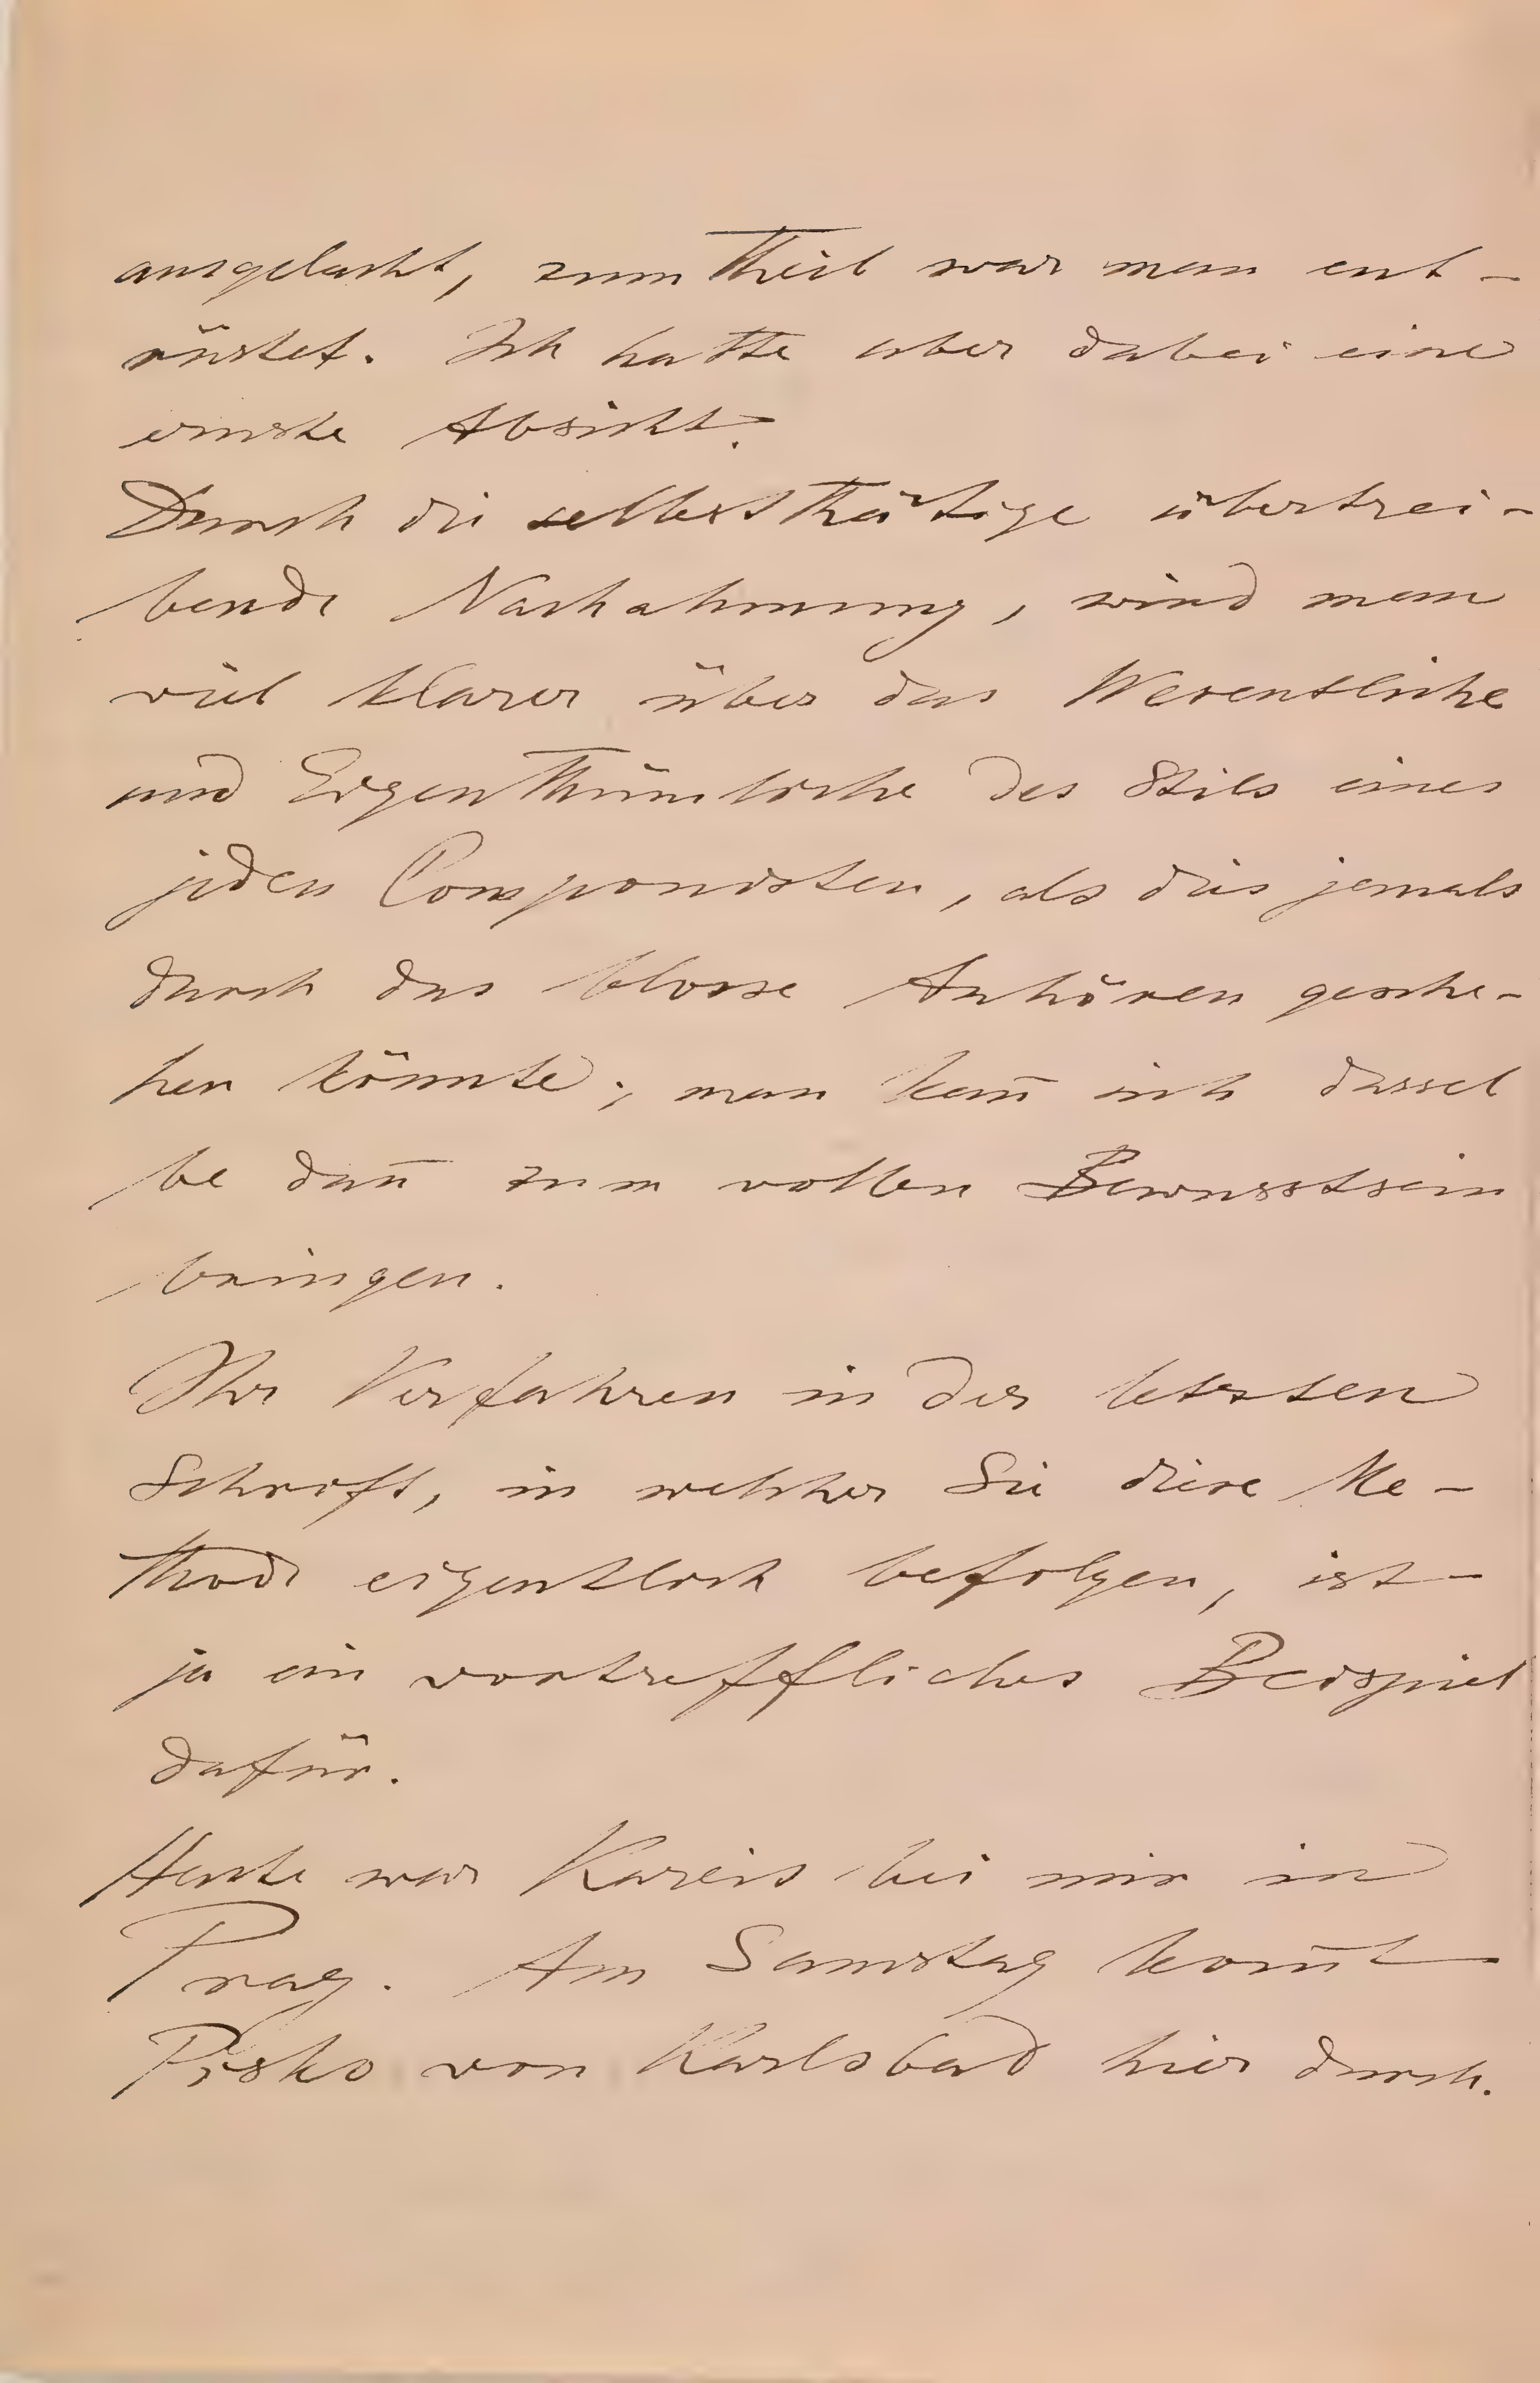 ausgelacht, zum Theil war man ent-
rüstet. Ich hatte aber dabei eine
ernste Absicht.
Durch die selbstthätige übertrei-
bende Nachahmung, wird man
viel klarer über das Wesentliche
und Eigenthümliche des Stils eines
jeden Componisten, als dies jemals
durch das blosse Anhören gesche-
hen könnte; man kan̄ sich dassel
be dan̄ zum vollen Bewusstsein
bringen.
Ihr Verfahren in der letzten
Schrift, in welcher Sie diese Me-
thode eigentlich befolgen, ist-
ja ein vortreffliches Beispiel
dafür.
Heute war Kareis bei mir in
Prag. Am Samstag kom̄t
Pisko von Karlsbad hier durch.